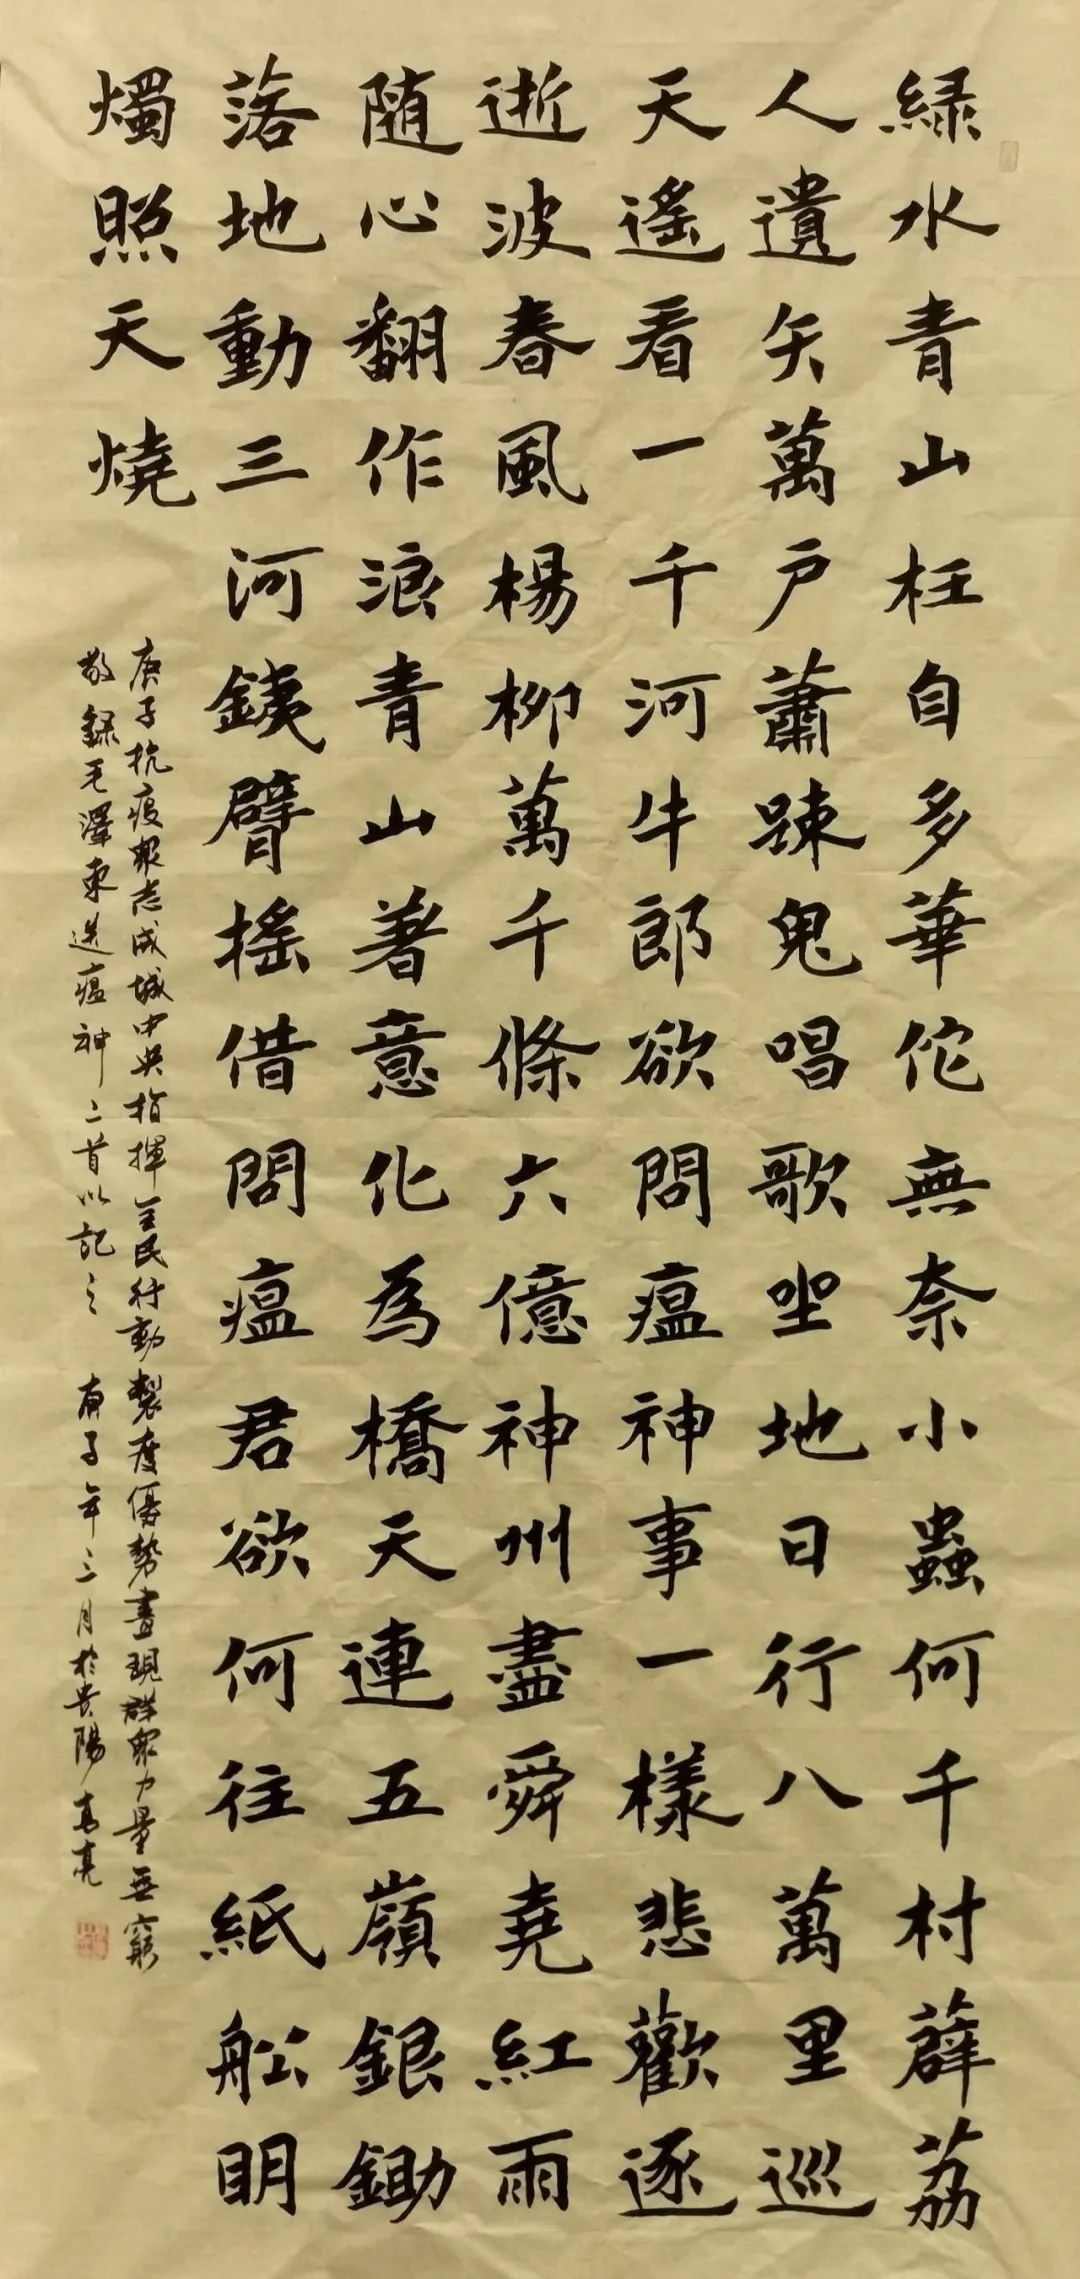 緑水青山枉自多華佗無奈小蟲何千村薜荔
人遺矢萬戶蕭踈鬼唱歌坐地日行八萬里巡
天遙看一千河牛郎欲問瘟神事一樣悲歡逐
逝波春風楊柳萬千條六億神州盡舜堯紅雨
随心翻作浪青山著意化為橋天連五嶺銀鋤
落地動三河銕臂搖借問瘟君欲何往紙舩明
燭照天燒
庚子抗疫眾志成城中央指揮全民行動製度優勢盡現群眾力量無窮
敬録毛澤東送瘟神二首以記之 庚子年三月於貴陽高亮